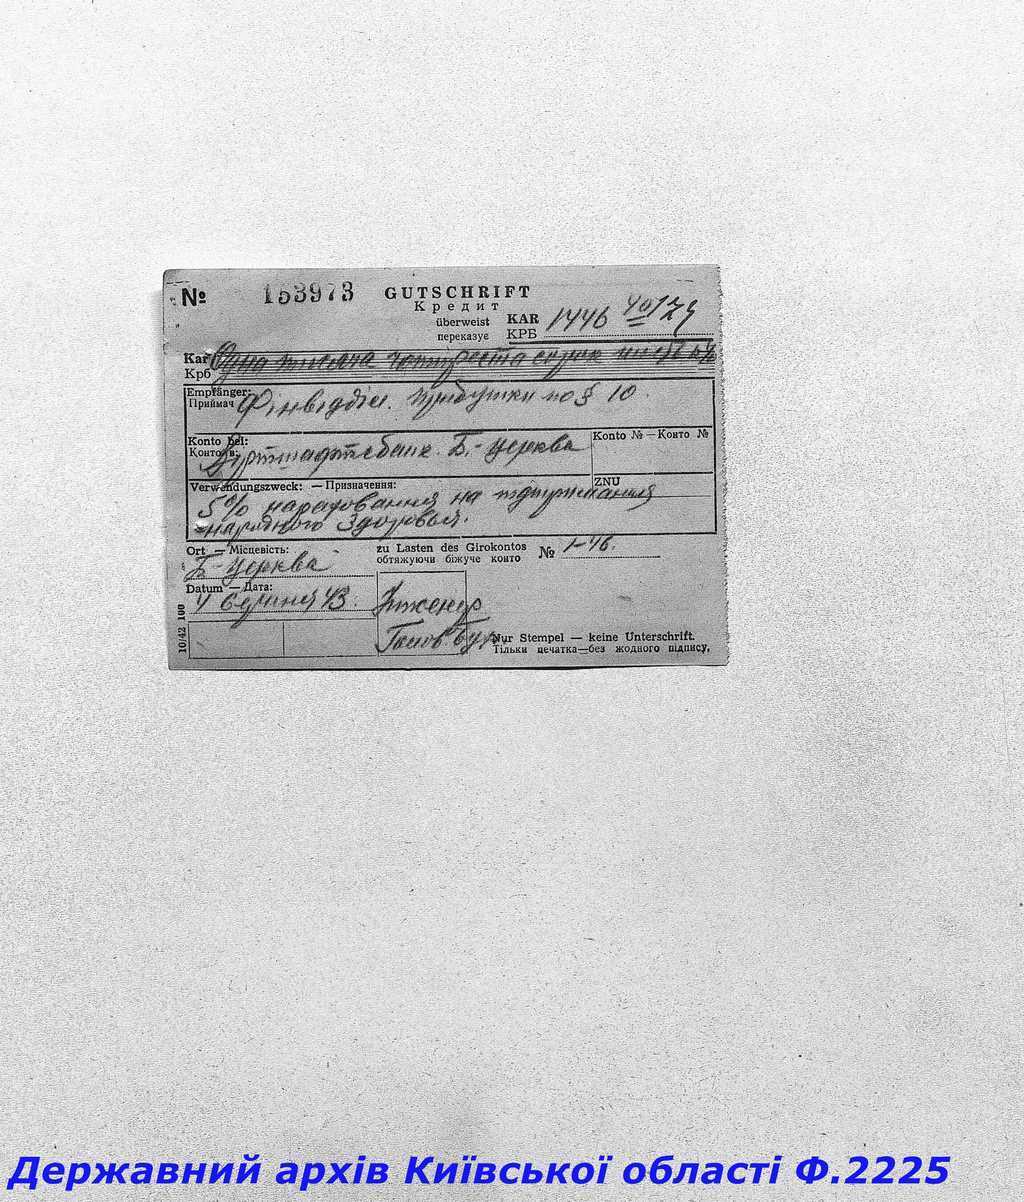 № 153973 GUTSCHRIFT
Кредит
überweist KAR 1446 40
переказує КРБ
Kar Одна тисяча чотириста сорок
Крб
Empfänger:
Приймач Фінвідділ. прибутки по § 10
Konto bei: Konto № — Конто №
Конто в: Віртшафтсбанк. Б.-Церква
Verwendungszweck: — Призначення: ZNU
5% нарахования на підтримання
народного Здоровья.
Ort — Місцевість: zu Lasten des Girokontos № 1-46.
Б-Церква обтяжуючи біжуче конто
Datum — Дата:
4 Січня 43.
Інженер
Голов. бух.
Nur Stempel — keine Unterschrift.
Тільки печатка—без жодного підпису,
10/42 100
Державний архів Київської області Ф.2225